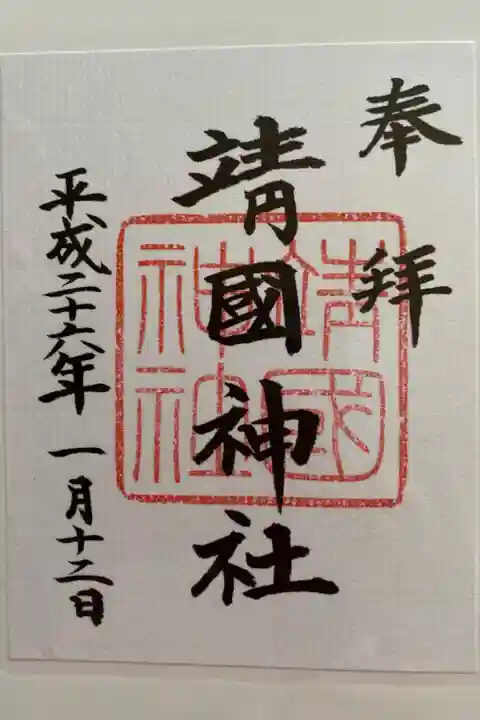 奉拝
靖國神社
靖國神社
平成二十六年一月十二日